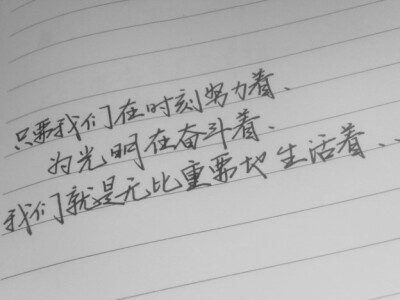 只要我们在时刻努力着、
为光明在奋斗着、
我们就是无比重要地生活着、、